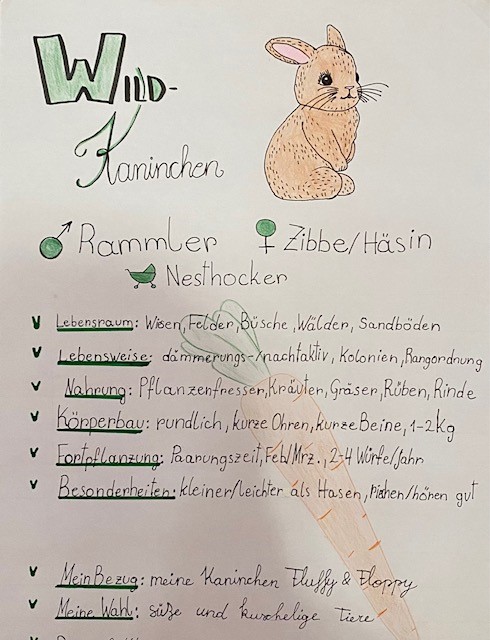 WILD-
Kaninchen
Rammler Zibbe/Häsin
Nesthocker
Lebensraum: Wisen, Felder, Büsche, Wälder, Sandböden
Lebensweise: dämmerungs-/nachtaktiv, Kolonien, Rangordnung
Nahrung: Pflanzenfresser, Kräuter, Gräser, Rüben, Rinde
Körperbau: rundlich, kurze Ohren, kurze Beine, 1-2kg
Fortpflanzung: Paarungszeit, Feb/Mrz., 2-4 Würfe/Jahr
Besonderheiten: kleiner/leichter als Hasen, riechen/hören gut
Mein Bezug: meine Kaninchen Fluffy & Floppy
Meine Wahl: süße und kuschelige Tiere